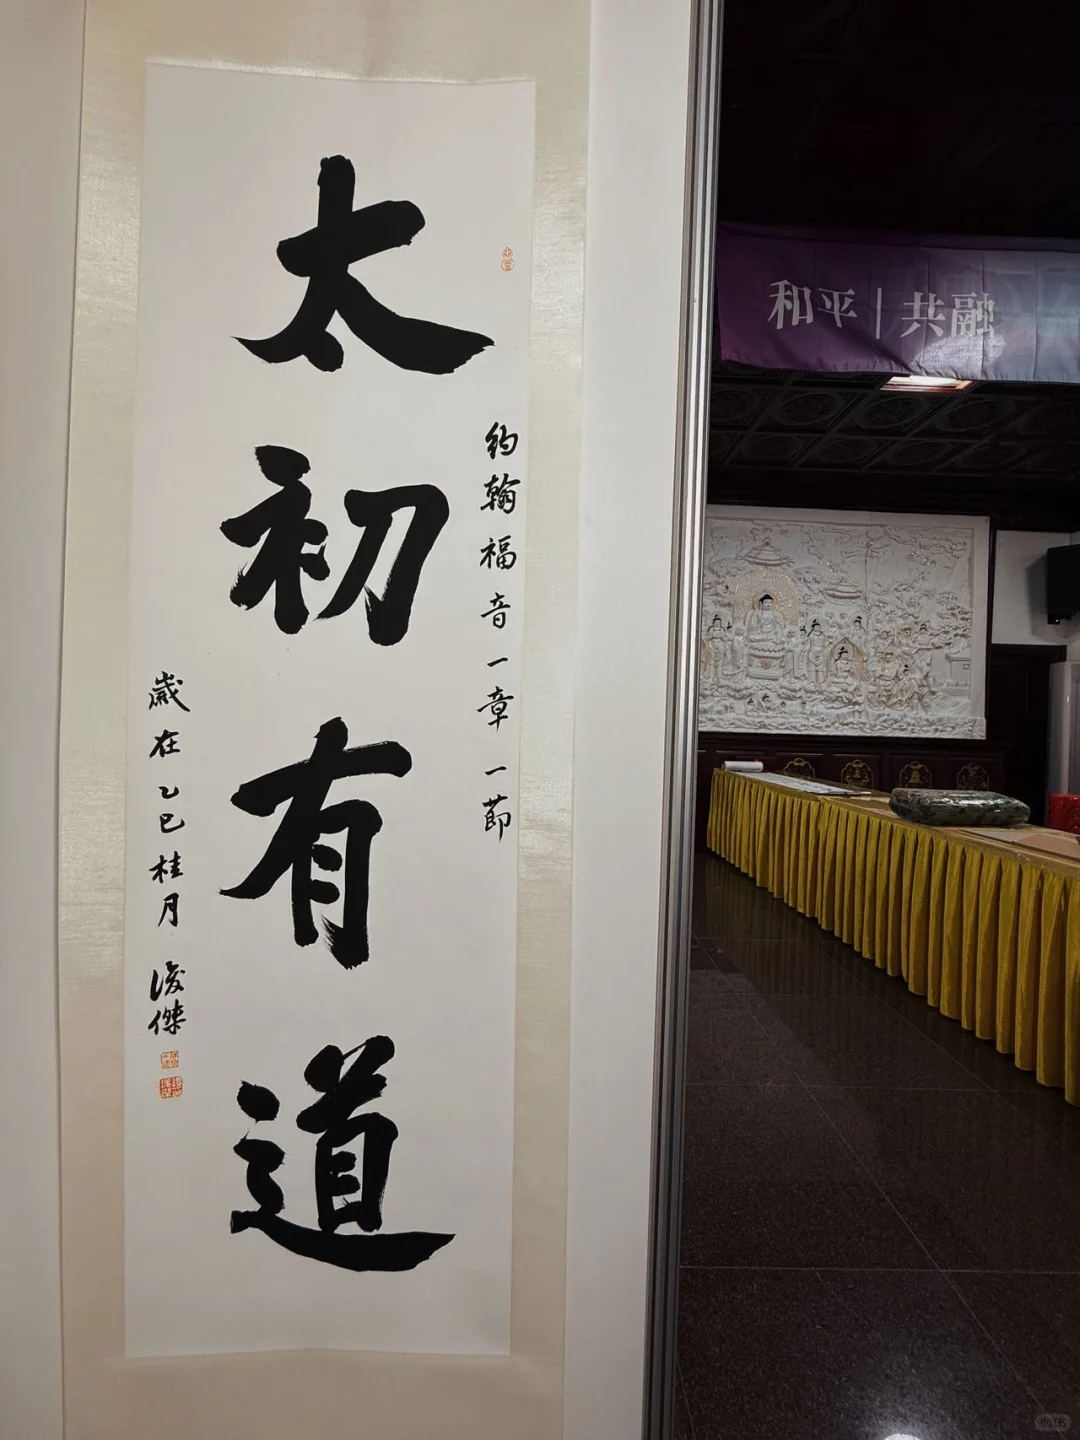 太初有道
約翰福音一章一節
歲在乙巳桂月 浚傑
和平｜共融